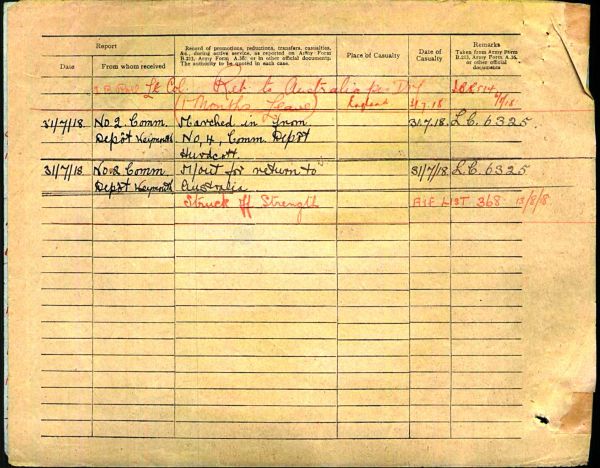 Report
Record of promotions, reductions, transfers, casualties,
&c., during active service, as reported on Army Form
B.213, Army Form A.36, or in other official documents.
The authority to be quoted in each case.
Place of Casualty
Date of
Casualty
Remarks
Taken from Army Form
B.213, Army Form A.36,
or other official
documents
Date
From whom received
Lt Col. Ret. to Australia per
(Months Leave)
England
7.18
31/7/18. No 2 Comm. Marched in from 31.7.18. L.C. 6325
Depôt Weymouth No, 4, Comm. Depôt
Hurdcott.
31/7/18. No 2 Comm. M/out for return to 31/7/18. L.C. 6325
Depôt Weymouth Australia.
Struck off Strength AIF LIST 368. 13/8/18